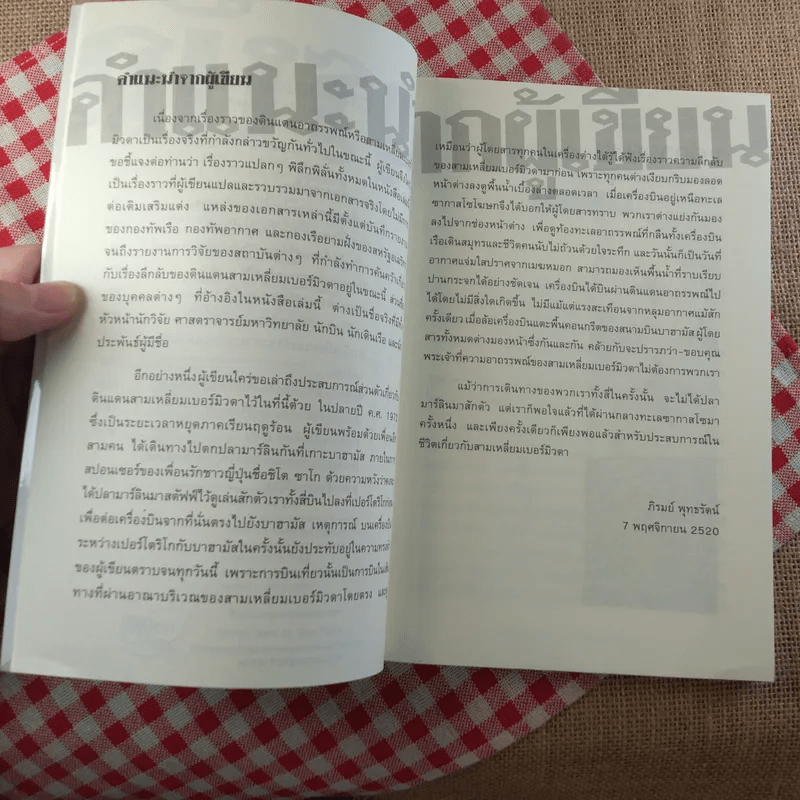 คำแนะนำจากผู้เขียน
คำแนะนำจากผู้เขียน
เนื่องจากเรื่องราวของดินแดนอาถรรพณ์หรือสามเหลี่ยม
มิวดาเป็นเรื่องจริงที่กำลังกล่าวขวัญกันทั่วไปในขณะนี้ ผู้เขียน
ขอชี้แจงต่อท่านว่า เรื่องราวแปลกๆ พิลึกพิลั่นทั้งหมดในหนังสือ
เป็นเรื่องราวที่ผู้เขียนแปลและรวบรวมมาจากเอกสารจริงโดยไม่
ต่อเติมเสริมแต่ง แหล่งของเอกสารเหล่านี้มีตั้งแต่บันทึกรายงาน
ของกองทัพเรือ กองทัพอากาศ และกองเรือยามฝั่งของสหรัฐ
จนถึงรายงานการวิจัยของสถาบันต่างๆ ที่กำลังทำการค้นคว้า
กับเรื่องลึกลับของดินแดนสามเหลี่ยมเบอร์มิวดาอยู่ในขณะนี้
ของบุคคลต่างๆ ที่อ้างอิงในหนังสือเล่มนี้ ต่างเป็นชื่อจริง
หัวหน้านักวิจัย ศาสตราจารย์มหาวิทยาลัย นักบิน นักเดินเรือ และ
ประพันธ์ผู้มีชื่อ
อีกอย่างหนึ่งผู้เขียนใคร่ขอเล่าถึงประสบการณ์ส่วนตัวเกี่ยวกับ
ดินแดนสามเหลี่ยมเบอร์มิวดาไว้ในที่นี้ด้วย ในปลายปี ค.ศ. 197
ซึ่งเป็นระยะเวลาหยุดภาคเรียนฤดูร้อน ผู้เขียนพร้อมด้วยเพื่อน
สามคน ได้เดินทางไปตกปลามาร์ลินกันที่เกาะบาฮามัส ภายใน
สปอนเซอร์ของเพื่อนรักชาวญี่ปุ่นชื่อชิโต ซาโก ด้วยความหวังว่า
ได้ปลามาร์ลินมาสตัฟฟ์ไว้ดูเล่นสักตัวเราทั้งสี่บินไปลงที่เปอร์โตริโก
เพื่อต่อเครื่องบินจากที่นั่นตรงไปยังบาฮามัส เหตุการณ์ บนเครื่อง
ระหว่างเปอร์โตริโกกับบาฮามัสในครั้งนั้นยังประทับอยู่ในความทรงจำ
ของผู้เขียนตราบจนทุกวันนี้ เพราะการบินเที่ยวนั้นเป็นการบินใน
ทางที่ผ่านอาณาบริเวณของสามเหลี่ยมเบอร์มิวดาโดยตรง และ
เหมือนว่าผู้โดยสารทุกคนในเครื่องต่างได้รู้ได้ฟังเรื่องราวความลึกลับ
ของสามเหลี่ยมเบอร์มิวดามาก่อน เพราะทุกคนต่างเงียบกริบมองลอด
หน้าต่างลงดูพื้นน้ำเบื้องล่างตลอดเวลา เมื่อเครื่องบินอยู่เหนือทะเล
ซากาสโซโฆษกจึงได้บอกให้ผู้โดยสารทราบ พวกเราต่างแย่งกันมอง
ลงไปจากช่องหน้าต่าง เพื่อดูท้องทะเลอาถรรพณ์ที่กลืนทั้งเครื่องบิน
เรือเดินสมุทรและชีวิตคนนับไม่ถ้วนด้วยใจระทึก และวันนั้นก็เป็นวันที่
อากาศแจ่มใสปราศจากเมฆหมอก สามารถมองเห็นพื้นน้ำที่ราบเรียบ
ปานกระจกได้อย่างชัดเจน เครื่องบินได้บินผ่านดินแดนอาถรรพณ์ไป
ได้โดยไม่มีสิ่งใดเกิดขึ้น ไม่มีแม้แต่แรงสะเทือนจากหลุมอากาศแม้สัก
ครั้งเดียว เมื่อล้อเครื่องบินแตะพื้นคอนกรีตของสนามบินบาฮามัส ผู้โดย
สารทั้งหมดต่างมองหน้าซึ่งกันและกัน คล้ายกับจะปรารภว่า-ขอบคุณ
พระเจ้าที่ความอาถรรพณ์ของสามเหลี่ยมเบอร์มิวดาไม่ต้องการพวกเรา
แม้ว่าการเดินทางของพวกเราทั้งสี่ในครั้งนั้น จะไม่ได้ปลา
มาร์ลินมาสักตัว แต่เราก็พอใจแล้วที่ได้ผ่านกลางทะเลซากาสโซมา
ครั้งหนึ่ง และเพียงครั้งเดียวก็เพียงพอแล้วสำหรับประสบการณ์ใน
ชีวิตเกี่ยวกับสามเหลี่ยมเบอร์มิวดา
ภิรมย์ พุทธรัตน์
7 พฤศจิกายน 2520